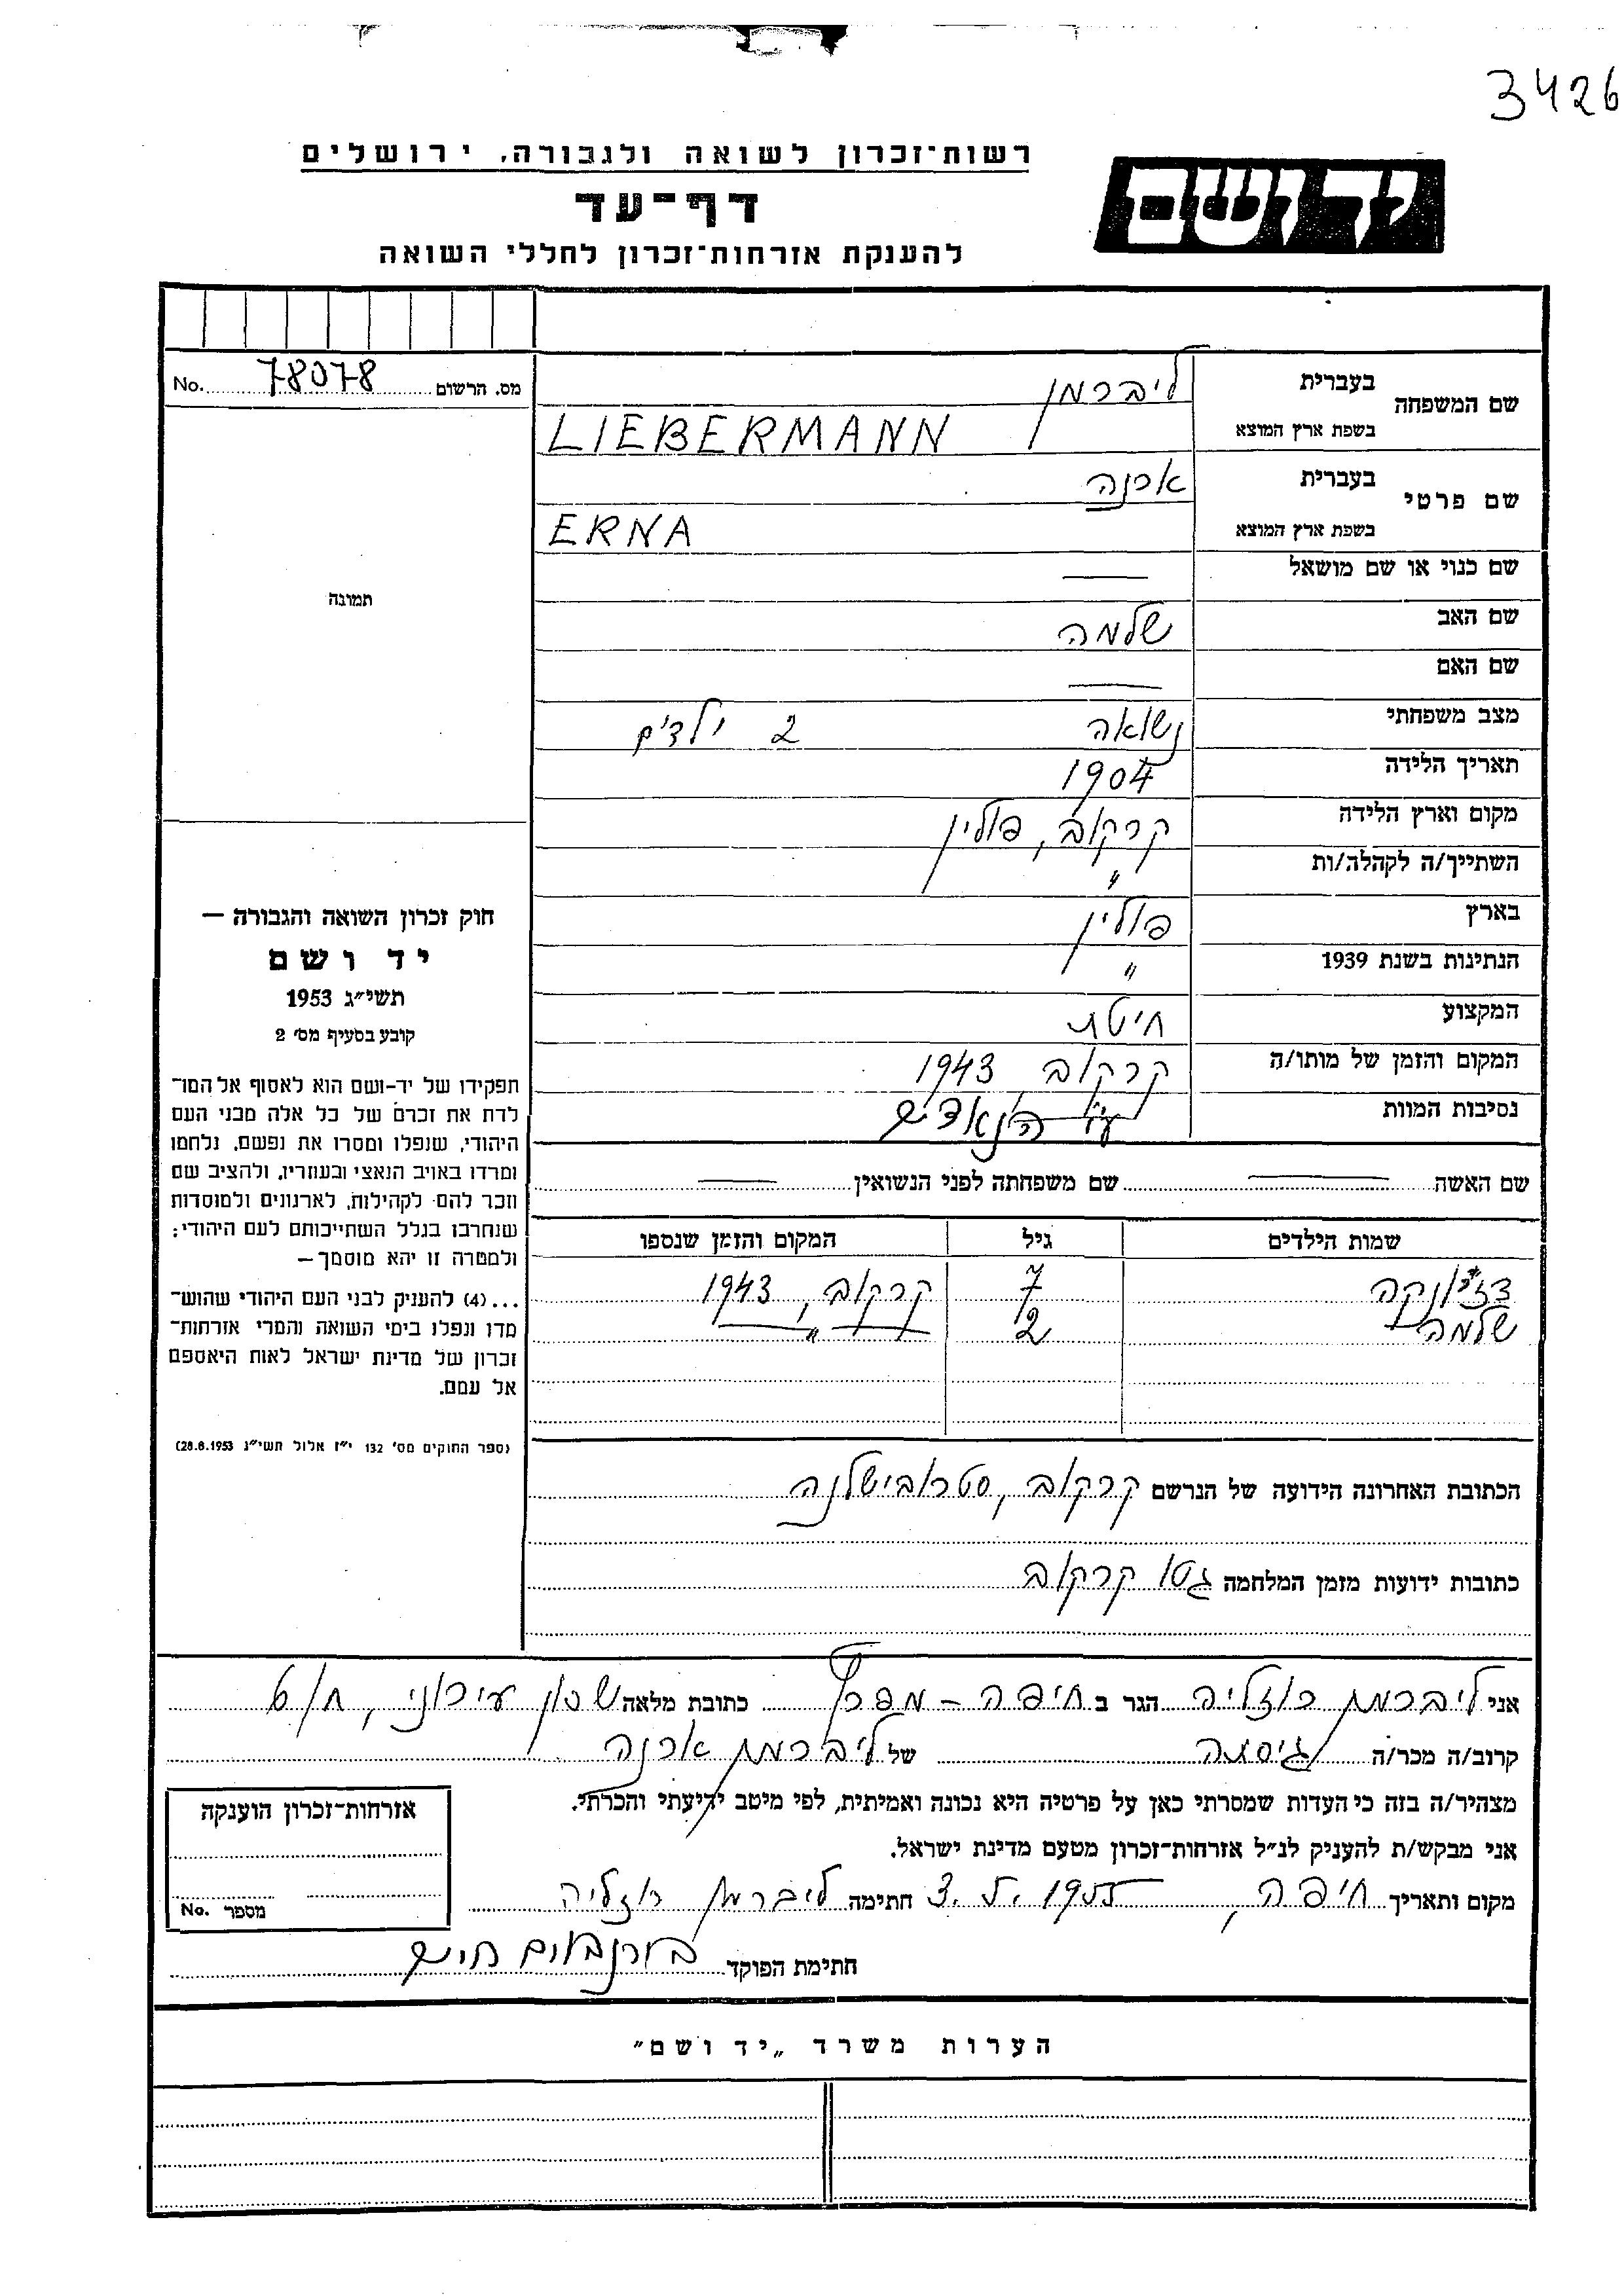 3426
רשות־זכרון לשואה ולגבורה, ירושלים
יד ושם
דף־עד
להענקת אזרחות־זכרון לחללי השואה
מס. הרשום 78078 No.
שם המשפחה בעברית ליברמן
בשפת ארץ המוצא LIEBERMANN
שם פרטי בעברית ארנה
בשפת ארץ המוצא ERNA
שם כנוי או שם מושאל —
שם האב שלמה
שם האם —
מצב משפחתי נשואה 2 ילדים
תאריך הלידה 1904
מקום וארץ הלידה קרקוב, פולין
השתייך/ה לקהלה/ות "
בארץ פולין
הנתינות בשנת 1939 "
המקצוע חיטת
המקום והזמן של מותו/ה קרקוב 1943
נסיבות המוות ע"י הנאצים
תמונה
חוק זכרון השואה והגבורה —
יד ושם
תשי״ג 1953
קובע בסעיף מס׳ 2
תפקידו של יד-ושם הוא לאסוף אל המו־
לדת את זכרם של כל אלה מבני העם
היהודי, שנפלו ומסרו את נפשם, נלחמו
ומרדו באויב הנאצי ובעוזריו, ולהציב שם
וזכר להם לקהילות, לארגונים ולמוסדות
שנחרבו בגלל השתייכותם לעם היהודי;
ולמטרה זו יהא מוסמך —
...(4) להעניק לבני העם היהודי שהוש־
מדו ונפלו בימי השואה והמרי אזרחות־
זכרון של מדינת ישראל לאות היאספם
אל עמם.
(ספר החוקים מס׳ 132 י״ז אלול תשי״ג 28.8.1953)
שם האשה — שם משפחתה לפני הנשואין —
שמות הילדים גיל המקום והזמן שנספו
דז'יונקה 7 קרקוב, 1943
שלמה 2 — " —
הכתובת האחרונה הידועה של הנרשם קרקוב, סטראבישלנה
כתובות ידועות מזמן המלחמה גטו קרקוב
אני ליברמן רוזליה הגר ב חיפה - מפרץ כתובת מלאה שכון עירוני, 6/ח
קרוב/ה מכר/ה גיסתה של ליברמן ארנה
מצהיר/ה בזה כי העדות שמסרתי כאן על פרטיה היא נכונה ואמיתית, לפי מיטב ידיעתי והכרתי.
אני מבקש/ת להעניק לנ״ל אזרחות־זכרון מטעם מדינת ישראל.
מקום ותאריך חיפה, 3.5.1955 חתימה ליברמן רוזליה
חתימת הפוקד בירנבוים חיים
אזרחות־זכרון הוענקה
מספר No.
הערות משרד „יד ושם״